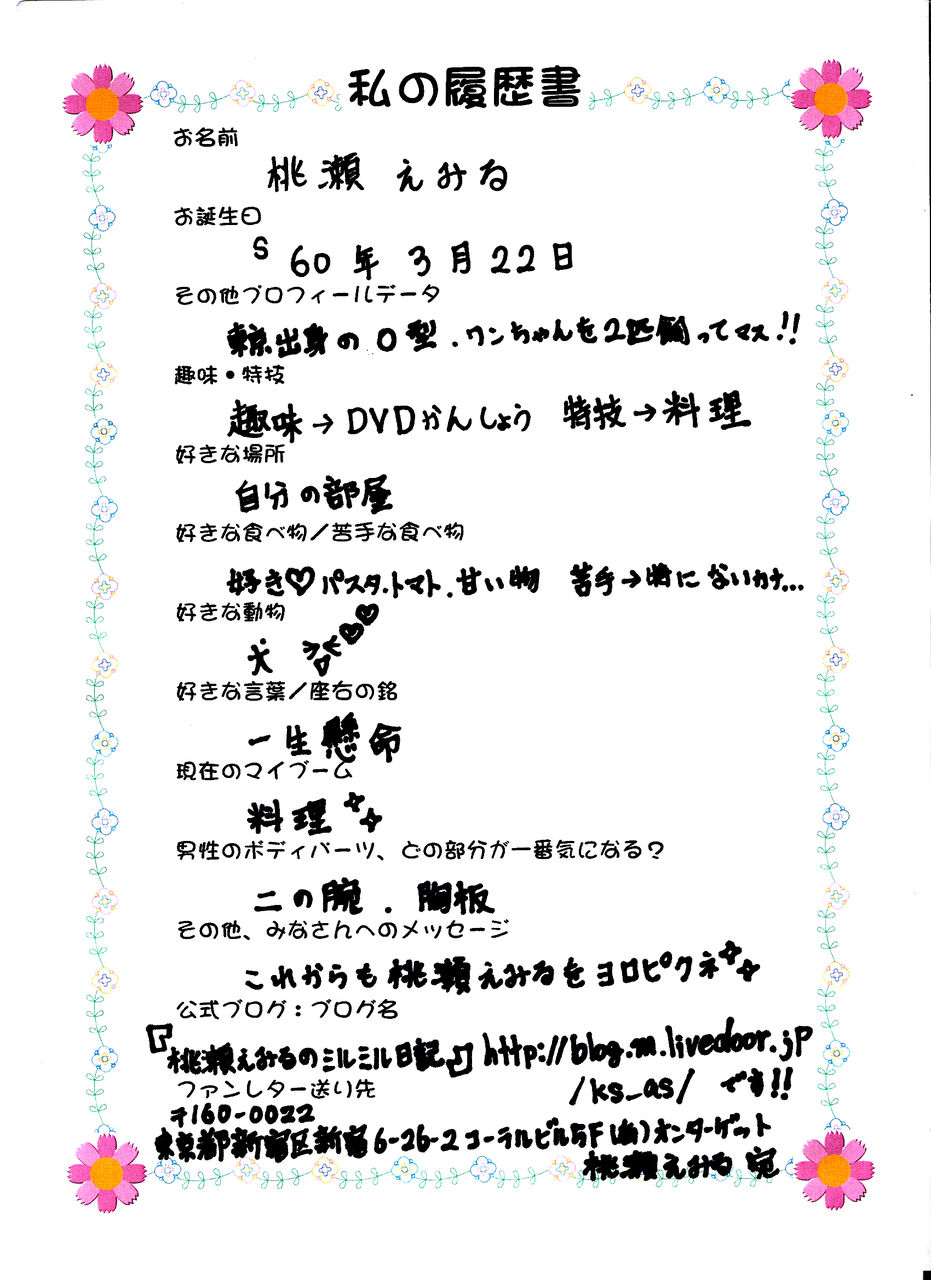 私の履歴書
お名前
桃瀬 えみる
お誕生日
S 60年 3月22日
その他プロフィールデータ
東京出身の O型.ワンちゃんを2匹飼ってマス!!
趣味・特技
趣味→DVDかんしょう 特技→料理
好きな場所
自分の部屋
好きな食べ物／苦手な食べ物
好き♡パスタ.トマト.甘い物 苦手→特にないカナ...
好きな動物
犬
好きな言葉／座右の銘
一生懸命
現在のマイブーム
料理
男性のボディパーツ、どの部分が一番気になる？
二の腕.胸板
その他、みなさんへのメッセージ
これからも桃瀬えみるをヨロピクネ
公式ブログ：ブログ名
『桃瀬えみるのミルミル日記』http://blog.m.livedoor.jp
/ks_as/ です!!
ファンレター送り先
〒160-0022
東京都新宿区新宿6-26-2コーラルビル5F(株)オンターゲット
桃瀬えみる 宛